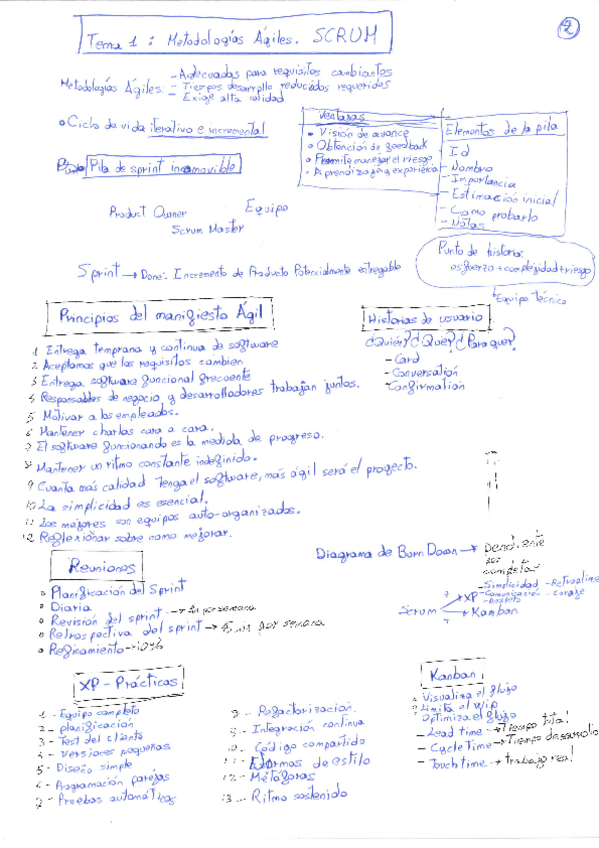 Tema 1: Metodologías Ágiles. SCRUM
2
Metodologías Ágiles:
- Adecuadas para requisitos cambiantes
- Tiempos desarrollo reducidos requeridos
- Exige alta calidad
• Ciclo de vida iterativo e incremental
Pila de sprint inamovible
Ventajas
• Visión de avance
• Obtención de feedback
• Permite manejar el riesgo
• Aprendizaje y experiencia
Elementos de la pila
- Id
- Nombre
- Importancia
- Estimación inicial
- Como probarlo
- Notas
Product Owner
Equipo
Scrum Master
Sprint → Done: Incremento de Producto Potencialmente entregable
Punto de historia:
esfuerzo+complejidad+riesgo
Equipo Técnico
Principios del manifiesto Ágil
1 Entrega temprana y continua de software
2 Aceptamos que los requisitos cambien
3 Entrega software funcional frecuente
4 Responsables de negocio y desarrolladores trabajan juntos.
5 Motivar a los empleados.
6 Mantener charlas cara a cara.
7 El software funcionando es la medida de progreso.
8 Mantener un ritmo constante indefinido.
9 Cuanta más calidad tenga el software, más ágil será el proyecto.
10 La simplicidad es esencial.
11 Los mejores son equipos auto-organizados.
12 Reflexionar sobre como mejorar.
Historias de usuario
¿Quién? ¿Que? ¿Para que?
- Card
- Conversation
- Confirmation
Diagrama de BurnDown → pendiente
por
completar
Reuniones
• Planificación del Sprint
• Diaria
• Revisión del sprint → 1h por semana
• Retrospectiva del sprint → 45 min por semana
• Refinamiento → 10%
Scrum
XP
- Simplicidad - Retroalime
- Comunicación - Coraje
- Respeto
Kanban
XP - Prácticas
1 - Equipo completo
2 - planificación
3 - Test del cliente
4 - Versiones pequeñas
5 - Diseño simple
6 - Programación parejas
7 - Pruebas automáticas
8 - Refactorización.
9 - Integración continua
10 - Código compartido
11 - Normas de estilo
12 - Metáforas
13 - Ritmo sostenido
Kanban
• Visualiza el flujo
• Limita el wip
• Optimiza el flujo
- Lead time → Tiempo total
- Cycle Time → Tiempo desarrollo
- Touch time → trabajo real